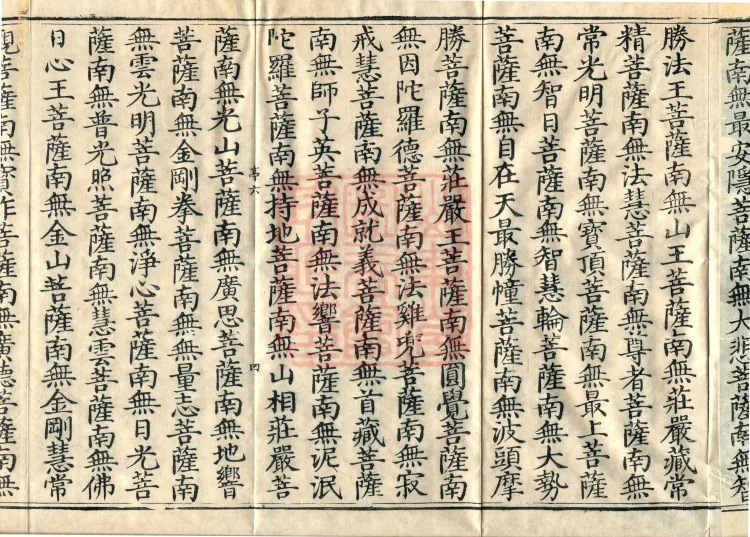 薩南無最安隱菩薩南無大悲菩薩南無智
勝法王菩薩南無山王菩薩南無莊嚴藏常
精菩薩南無法慧菩薩南無尊者菩薩南無
常光明菩薩南無寶頂菩薩南無最上菩薩
南無智日菩薩南無智慧輪菩薩南無大勢
菩薩南無自在天最勝幢菩薩南無波頭摩
勝菩薩南無莊嚴王菩薩南無圓覺菩薩南
無因陀羅德菩薩南無法雞兜菩薩南無寂
戒慧菩薩南無成就義菩薩南無首藏菩薩
南無師子英菩薩南無法響菩薩南無泥泯
陀羅菩薩南無持地菩薩南無山相莊嚴菩
常六 四
薩南無光山菩薩南無廣思菩薩南無地響
菩薩南無金剛拳菩薩南無無量志菩薩南
無雲光明菩薩南無淨心菩薩南無日光菩
薩南無普光照菩薩南無慧雲菩薩南無佛
日心王菩薩南無金山菩薩南無金剛慧常
現菩薩南無寶作菩薩南無廣德菩薩南無